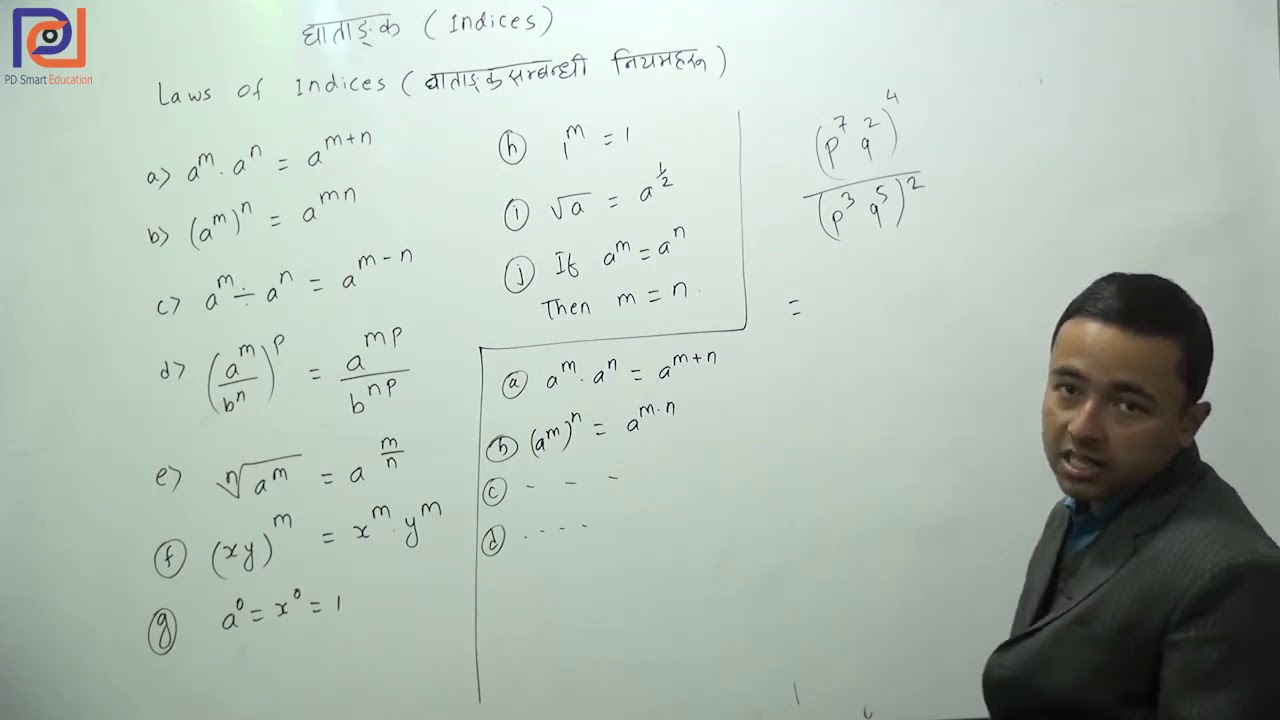 PD Smart Education
घाताङ्क (Indices)
Laws of Indices (घाताङ्क सम्बन्धी नियमहरू)
a) a^m . a^n = a^{m+n}
b) (a^m)^n = a^{mn}
c) a^m ÷ a^n = a^{m-n}
d) (a^m/b^n)^p = a^{mp}/b^{np}
e) ⁿ√a^m = a^{m/n}
f) (xy)^m = x^m . y^m
g) a^0 = x^0 = 1
h) 1^m = 1
i) √a = a^{1/2}
j) If a^m = a^n
Then m = n.
a) a^m . a^n = a^{m+n}
b) (a^m)^n = a^{m.n}
c) - - -
d) . . . .
(p^7 q^2)^4
/(p^3 q^5)^2
=